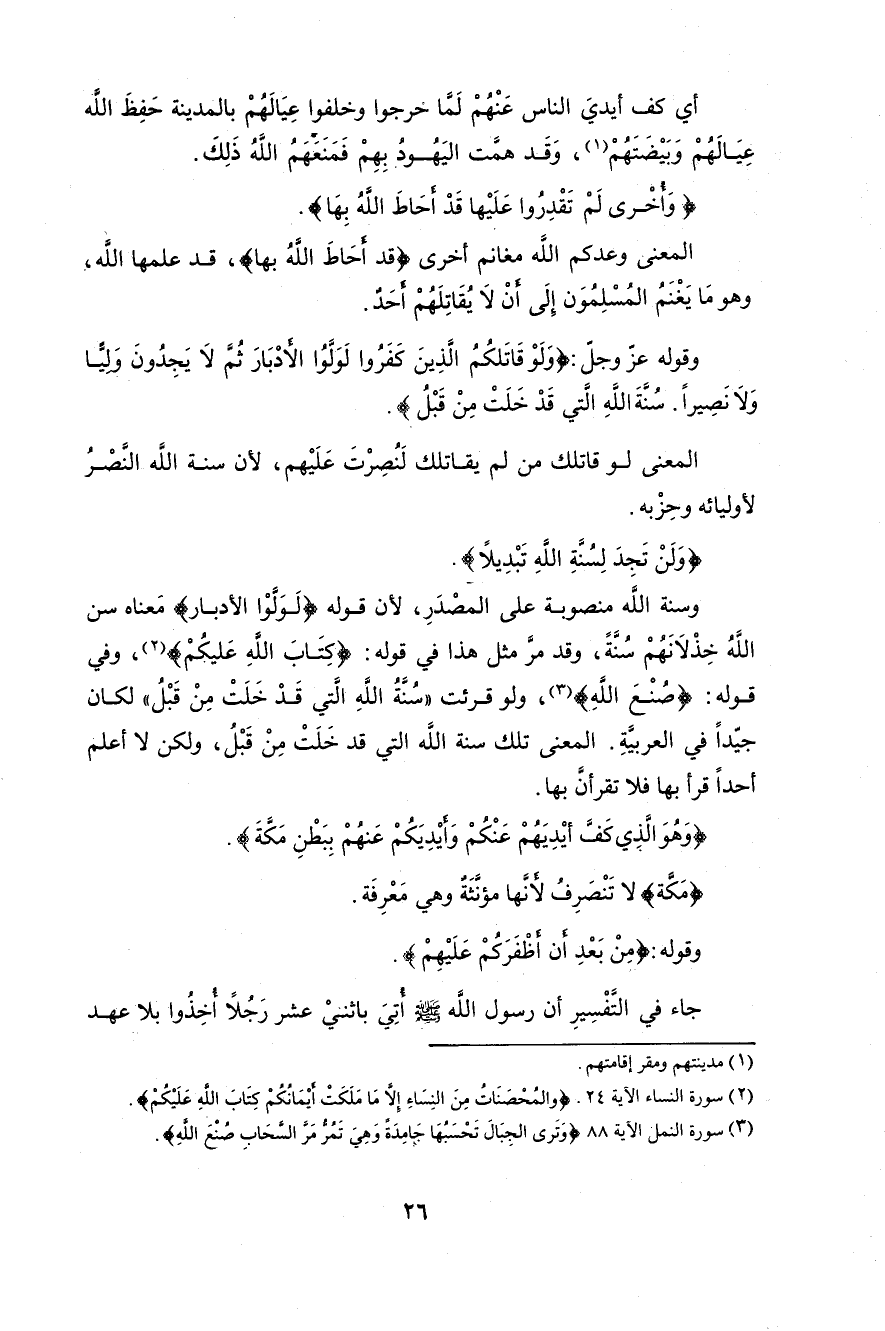 أي كف أيديَ الناس عَنْهُمْ لَمَّا خرجوا وخلفوا عِيَالَهُمْ بالمدينة حَفِظَ اللَّه
عِيَـالَهُمْ وَبَيْضَتَهُمْ(١)، وَقَـد همَّت اليَهُـودُ بِهِمْ فَمَنَعَهُمُ اللَّهُ ذَلِكَ.
﴿ وَأُخْـرى لَمْ تَقْدِرُوا عَلَيْها قَدْ أَحَاطَ اللَّهُ بِهَا﴾.
المعنى وعدكم اللَّه مغانم أخرى ﴿قد أَحَاطَ اللَّهُ بها﴾، قـد علمها اللَّه،
وهو مَا يَغْنَمُ المُسْلِمُوَن إِلَى أَنْ لَا يُقَاتِلَهُمْ أَحَدٌ.
وقوله عزّ وجلّ :﴿وَلَوْ قَاتَلكُمُ الَّذِينَ كَفَرُوا لَوَلَّوُا الأَدْبَارَ ثُمَّ لَا يَجِدُونَ وَلِيًّـا
وَلَا نَصِيراً. سُنَّةَ اللَّهِ الَّتي قَدْ خَلَتْ مِنْ قَبْلُ ﴾.
المعنى لـو قاتلك من لم يقـاتلك لَنُصِرْتَ عَلَيْهم، لأن سنـة اللَّه النَّصْـرُ
لأوليائه وحِزْبه.
﴿وَلَنْ تَجِدَ لِسُنَّةِ اللَّهِ تَبْدِيلاً﴾.
وسنة اللَّه منصوبـة على المصْدَرِ، لأن قـوله ﴿لَـوَلَّوْا الأدبـار﴾ مَعناه سن
اللَّهُ خِذْلَانَهُمْ سُنَّةً، وقد مرَّ مثل هذا في قوله: ﴿كِتَـابَ اللَّهِ عَليكُمْ﴾(٢)، وفي
قـوله: ﴿صُنْـعَ اللَّهِ﴾(٣)، ولو قـرئت «سُنَّةُ اللَّهِ الَّتي قَـدْ خَلَتْ مِنْ قَبْلُ» لكـان
جيّداً في العربيَّةِ. المعنى تلك سنة اللَّه التي قد خَلَتْ مِنْ قَبْلُ، ولكن لا أعلم
أحداً قرأ بها فلا تقرأنَّ بها.
﴿وَهُوَ الَّذِي كَفَّ أيْدِيَهُمْ عَنْكُمْ وَأَيْدِيَكُمْ عَنهُمْ بِبَطْنِ مَكَّةَ﴾.
﴿مَكَّة﴾ لا تَنْصَرِفُ لأَنَّها مؤنَّثَةٌ وهي مَعْرِفَة.
وقوله:﴿مِنْ بَعْدِ أن أَظْفَرَكُمْ عَلَيْهِمْ ﴾.
جاء في التَّفْسِيرِ أن رسول اللَّه ﷺ أُتِيَ باثنيْ عشر رَجُلًا أُخِذُوا بلا عهـد
(١) مدينتهم ومقر إقامتهم.
(٢) سورة النساء الآية ٢٤. ﴿والمُحْصَنَاتُ مِنَ النِسَاءِ إلَّا مَا مَلَكَتْ أَيْمَانُكُمْ كِتَابَ اللَّهِ عَلَيْكُمْ﴾.
(٣) سورة النمل الآية ٨٨ ﴿وَتَرى الجِبَالَ تَحْسَبُهَا جَامِدَةً وَهِيَ تَمُرُّ مَرَّ السَّحَابِ صُنْعَ اللَّهِ﴾.
٢٦